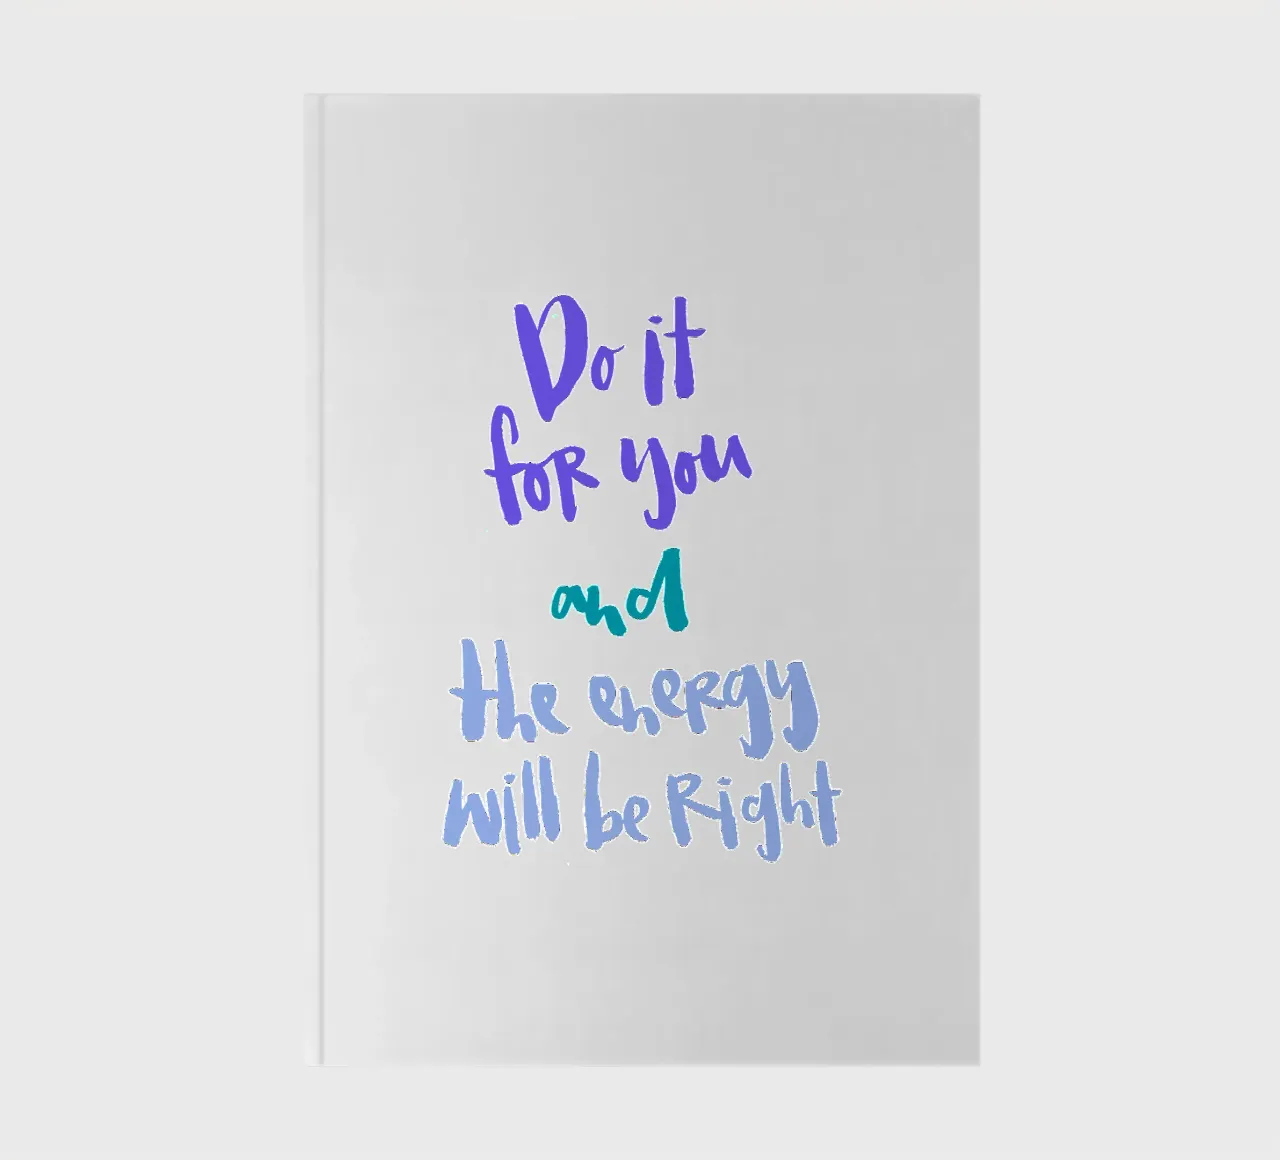 Do it
for you
and
the energy
will be Right